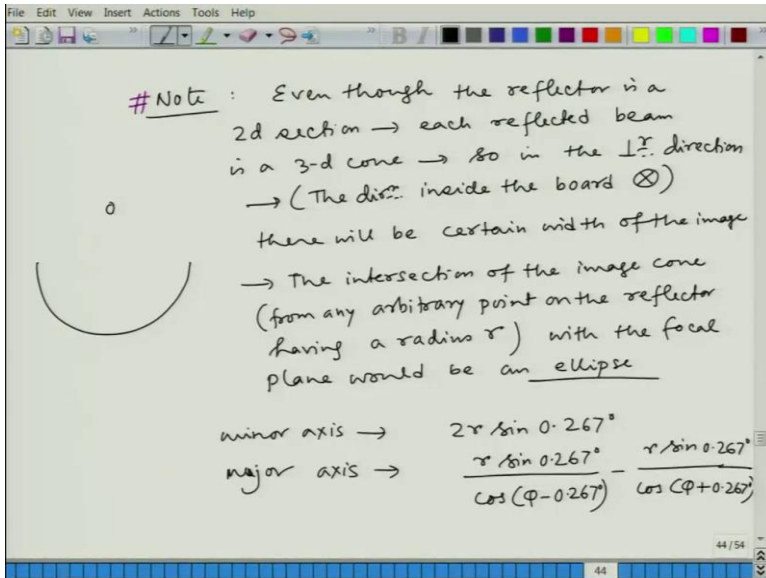 File Edit View Insert Actions Tools Help
# Note : Even though the reflector is a
2d section → each reflected beam
is a 3-d cone → so in the ⊥r. direction
→ (The dirn. inside the board ⊗)
there will be certain width of the image
→ The intersection of the image cone
(from any arbitrary point on the reflector
having a radius r) with the focal
plane would be an ellipse
minor axis → 2r sin 0.267°
major axis → r sin 0.267° / cos (φ-0.267°) - r sin 0.267° / cos (φ+0.267°)
44/54
44